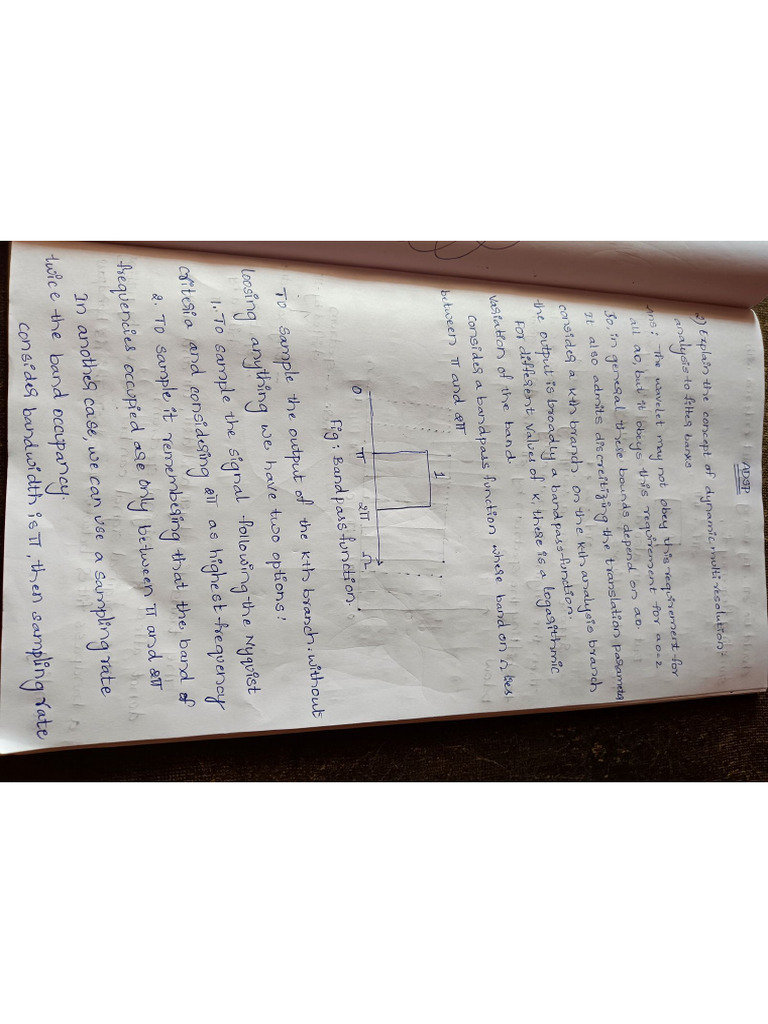 ADSP
2) Explain the concept of dynamic multi-resolution
analysis to filter banks
Ans: The wavelet may not obey this requirement for
all ao, but it obeys this requirement for ao=2
So, in general these bounds depend on ao.
It also admits discreitizing the translation parameter
consider a kth branch on the kth analysis branch
the output is broadly a bandpass-function.
For different values of k, there is a logarithmic
variation of the band.
consider a bandpass function whose band on Ω lies
between π and 2π
1
0 π 2π Ω
Fig: Bandpass function.
To sample the output of the kth branch without
loosing anything we have two options:
1. To sample the signal following the Nyquist
criteria and considering 2π as highest frequency
2. To sample it remembering that the band of
frequencies occupied are only between π and 2π
In another case, we can use a sampling rate
twice the band occupancy.
consider bandwidth is π, then sampling rate